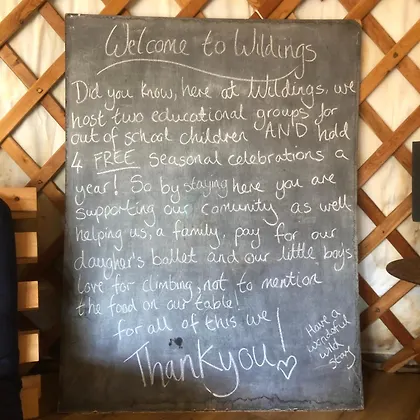 Welcome to Wildings
Did you know, here at Wildings, we
host two educational groups for
out of school children AND hold
4 FREE seasonal celebrations a
year! So by staying here you are
supporting our comunity as well
helping us, a family, pay for our
daugher's ballet and our little boys
love for climbing, not to mention
the food on our table!
for all of this we
Thankyou!
Have a
wonderful
wild
stay